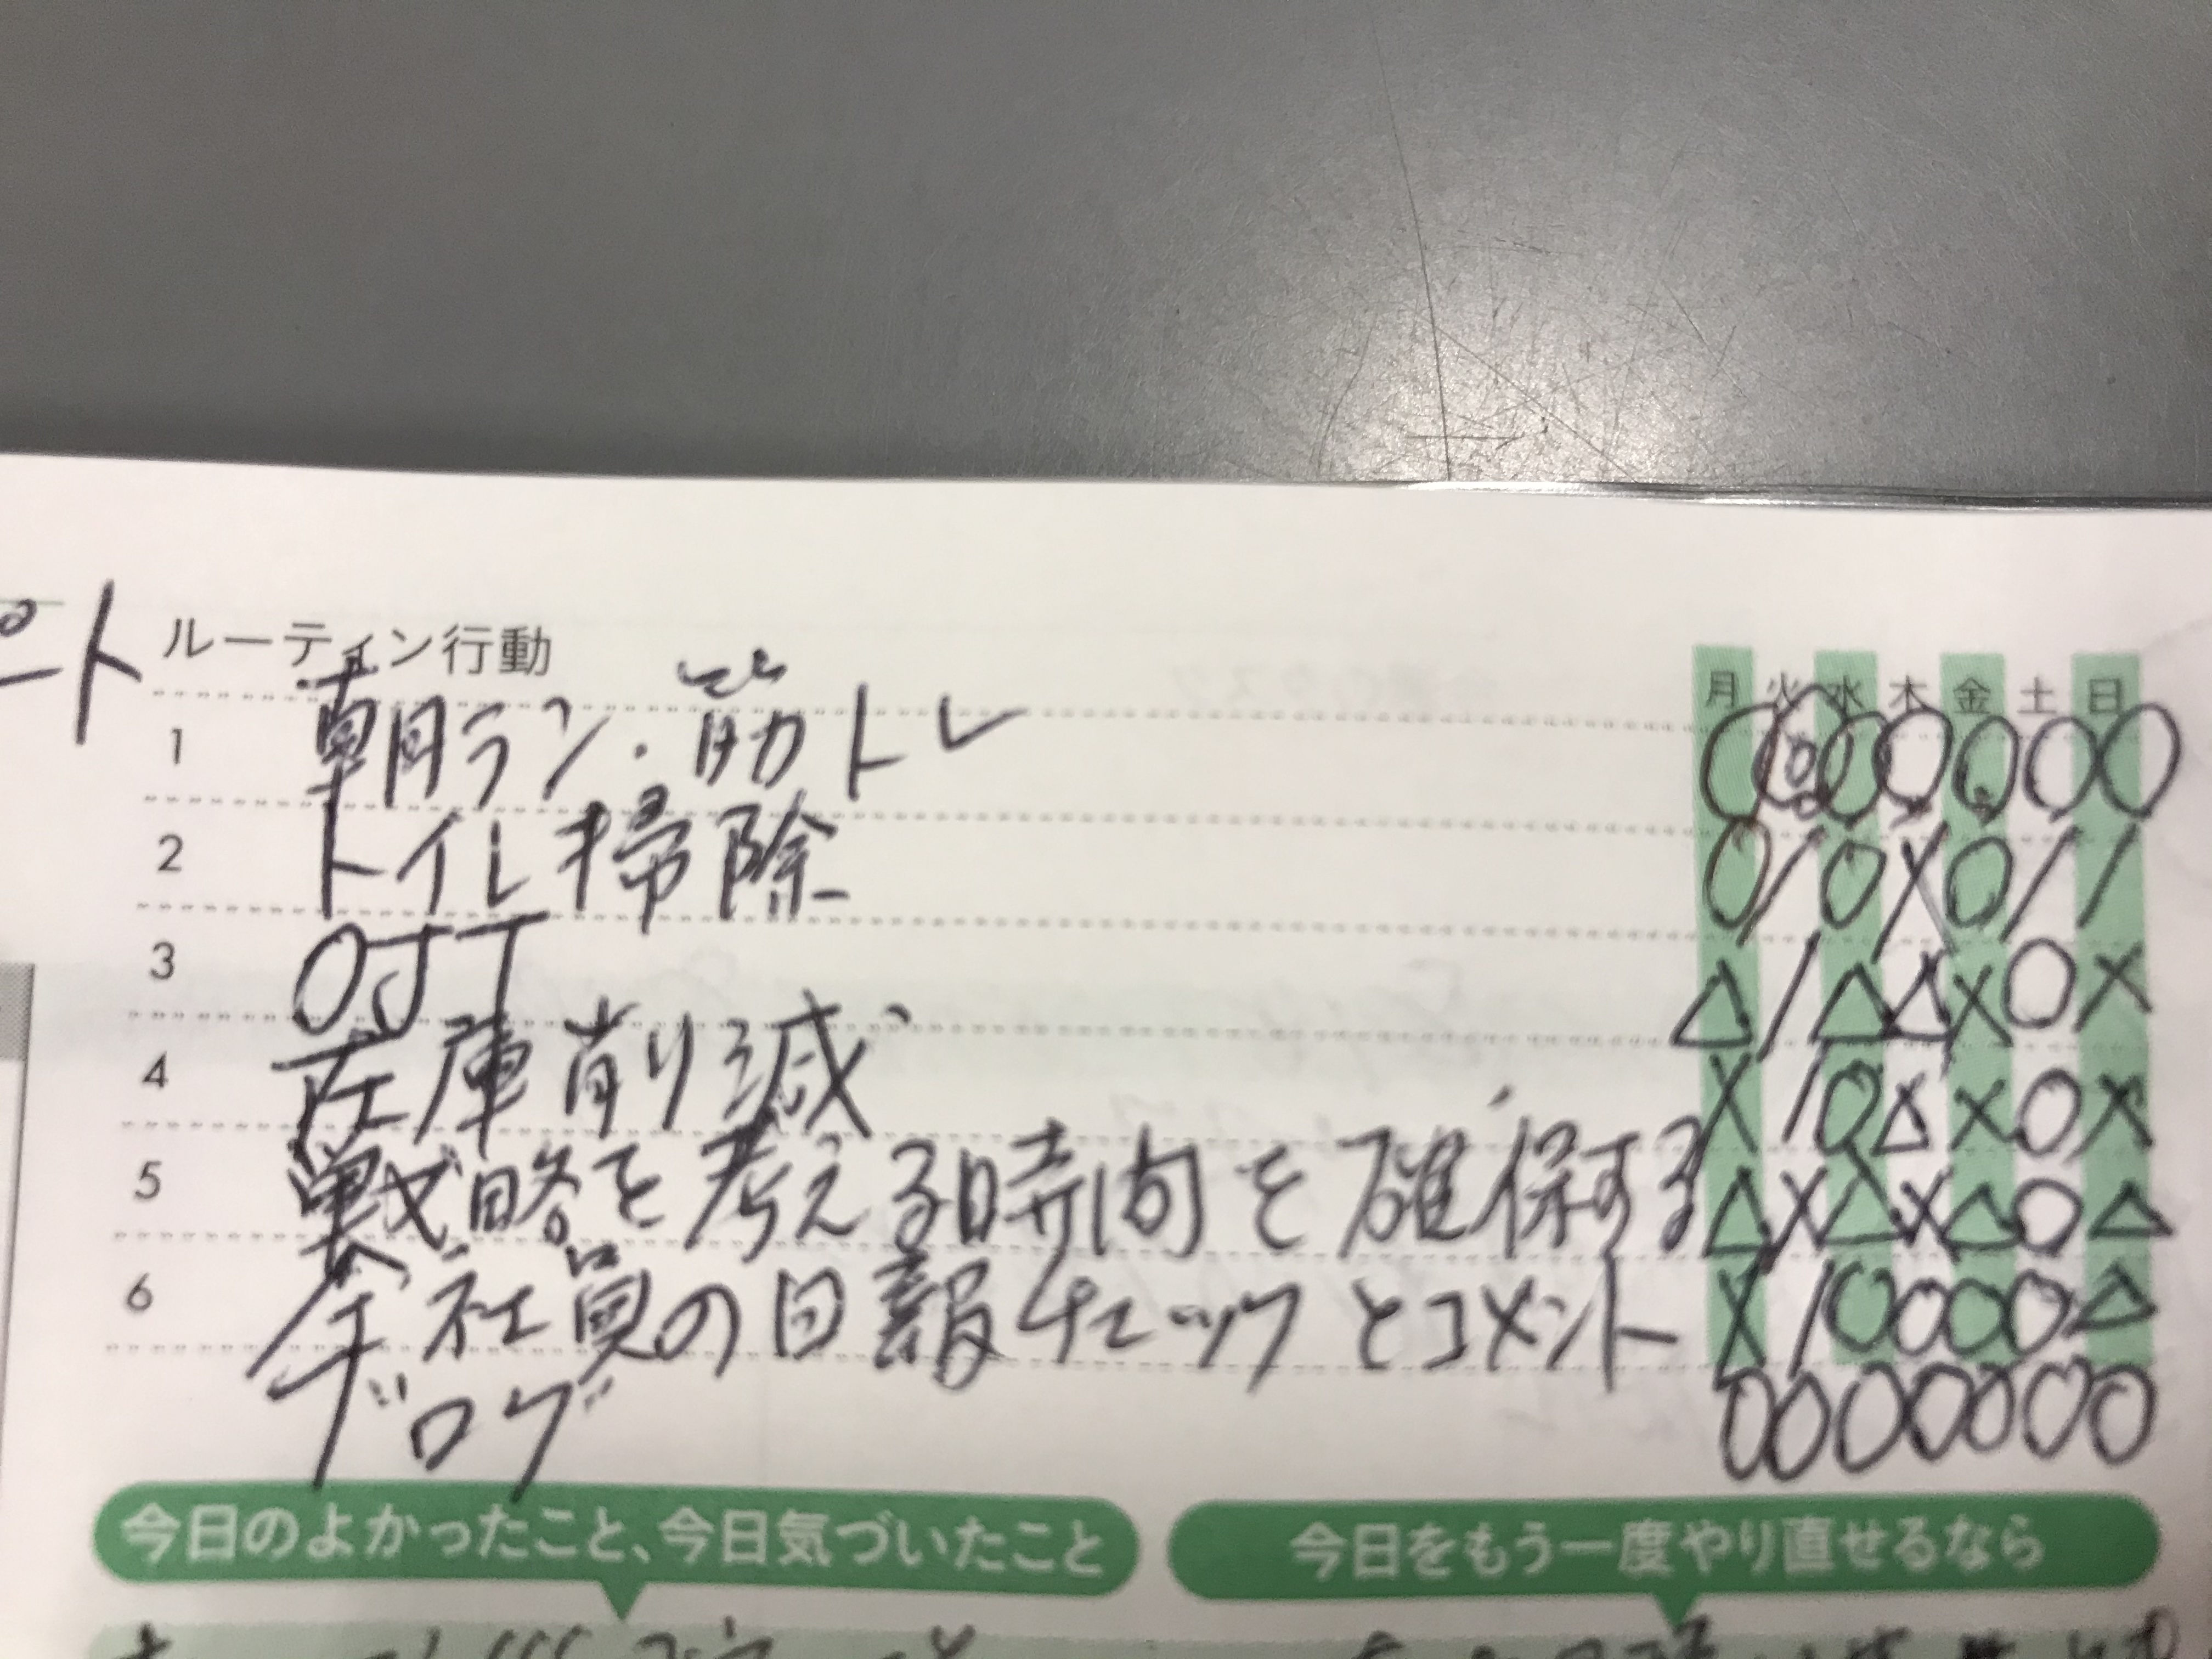 ート
ルーティン行動
月 火 水 木 金 土 日
1 朝ラン・筋トレ ○ ○ ○ ○ ○ ○ ○
2 トイレ掃除 ○ / ○ × ○ / /
3 OJT △ / △ △ × ○ ×
4 在庫削り減 × / ○ △ × ○ ×
5 戦略を考える時間を確保する △ × △ × △ ○ △
6 全社員の日報チェックとコメント × / ○ ○ ○ ○ △
ブログ ○ ○ ○ ○ ○ ○ ○
今日のよかったこと、今日気づいたこと
今日をもう一度やり直せるなら